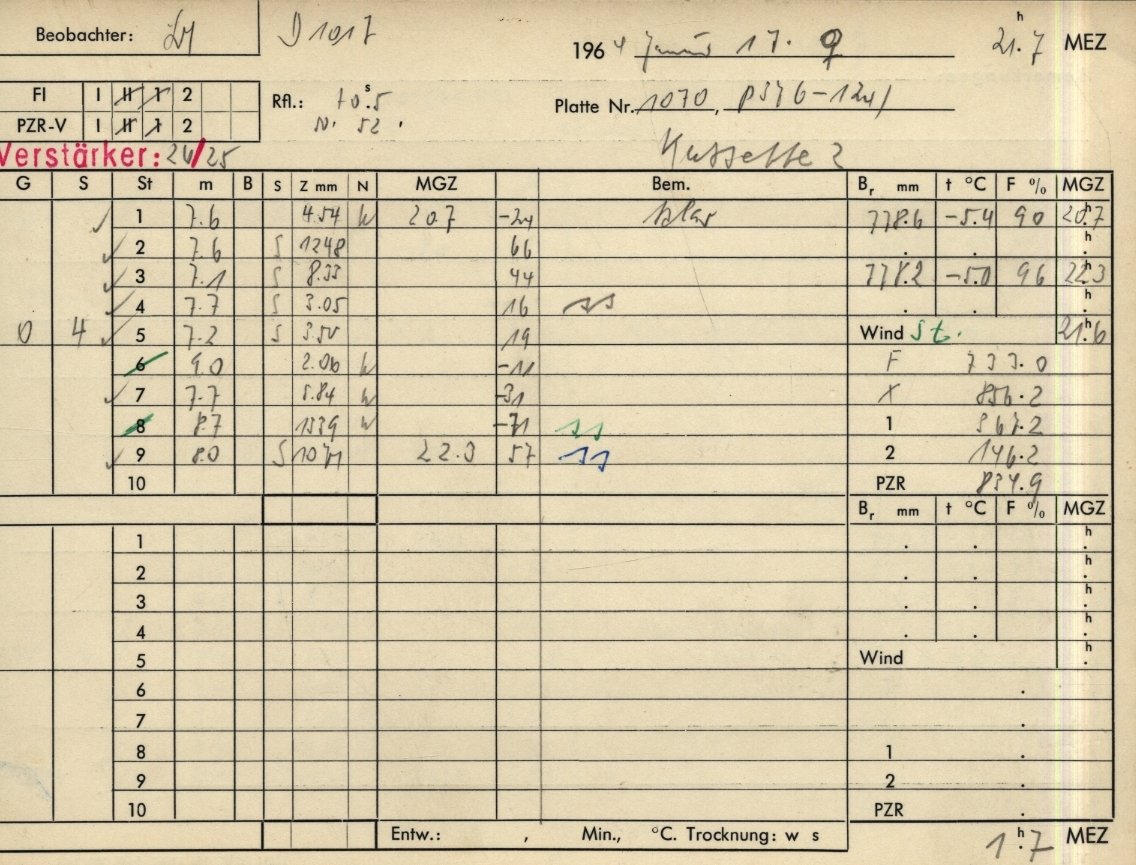 Beobachter: D 1017 1964 Januar 17. ♀ 21ʰ.7 MEZ
FI I II 1 2
Rfl.: +0ˢ.5
N. 52.
Platte Nr. 1070,
PZR-V I II 1 2
Verstärker: 26/25 Kassette 2
G S St m B S Z mm N MGZ Bem. Bᵣ mm t °C F % MGZ
1 7.6 4.54 N 20.7 -24 klar 778.6 -5.4 90 20ʰ.7
2 7.6 S 1248 66 . . ʰ.
3 7.1 S 8.33 44 778.2 -5.0 96 22ʰ.3
4 7.7 S 3.05 16 ss . . ʰ.
0 4 5 7.2 S 3.50 19 Wind St. 21ʰ.6
6 9.0 2.06 N -11 F 733.0
7 7.7 5.84 N -31 X 856.2
8 8.7 1339 N -71 ss 1 367.2
9 8.0 S 1071 22.3 57 ss 2 146.2
10 PZR 834.9
Bᵣ mm t °C F % MGZ
1 . . ʰ.
2 . . ʰ.
3 . . ʰ.
4 . . ʰ.
5 Wind ʰ.
6 .
7 .
8 1 .
9 2 .
10 PZR .
Entw.: , Min., °C. Trocknung: w s 1ʰ.7 MEZ